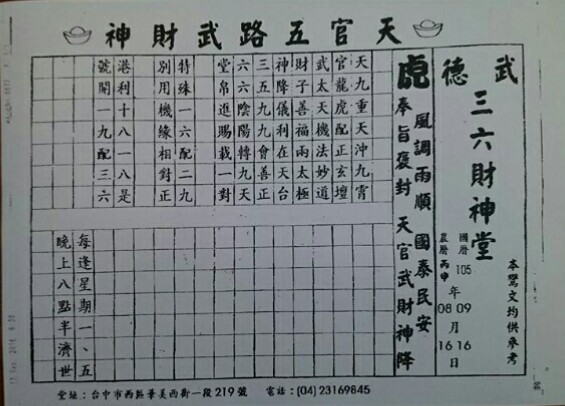 天官五路武財神
武德
三六財神堂
本鸞文均供參考
國曆 105 年 09 月 16 日
農曆 丙申 年 08 月 16 日
虎 風調雨順 國泰民安
奉旨褒封 天官武財神降
天九重天沖九霄
官龍虎配正玄壇
武太天機法妙道
財子善福兩太極
神降儀利在天台
三五九九會善正
六六陰陽轉九天
堂帛進賜載一對
特殊一六配二九
別用機緣相對正
港利十八一八是
號開一九配三六
每逢星期一、五
晚上八點半濟世
堂址：台中市西區華美西街一段219號 電話：(04)23169845